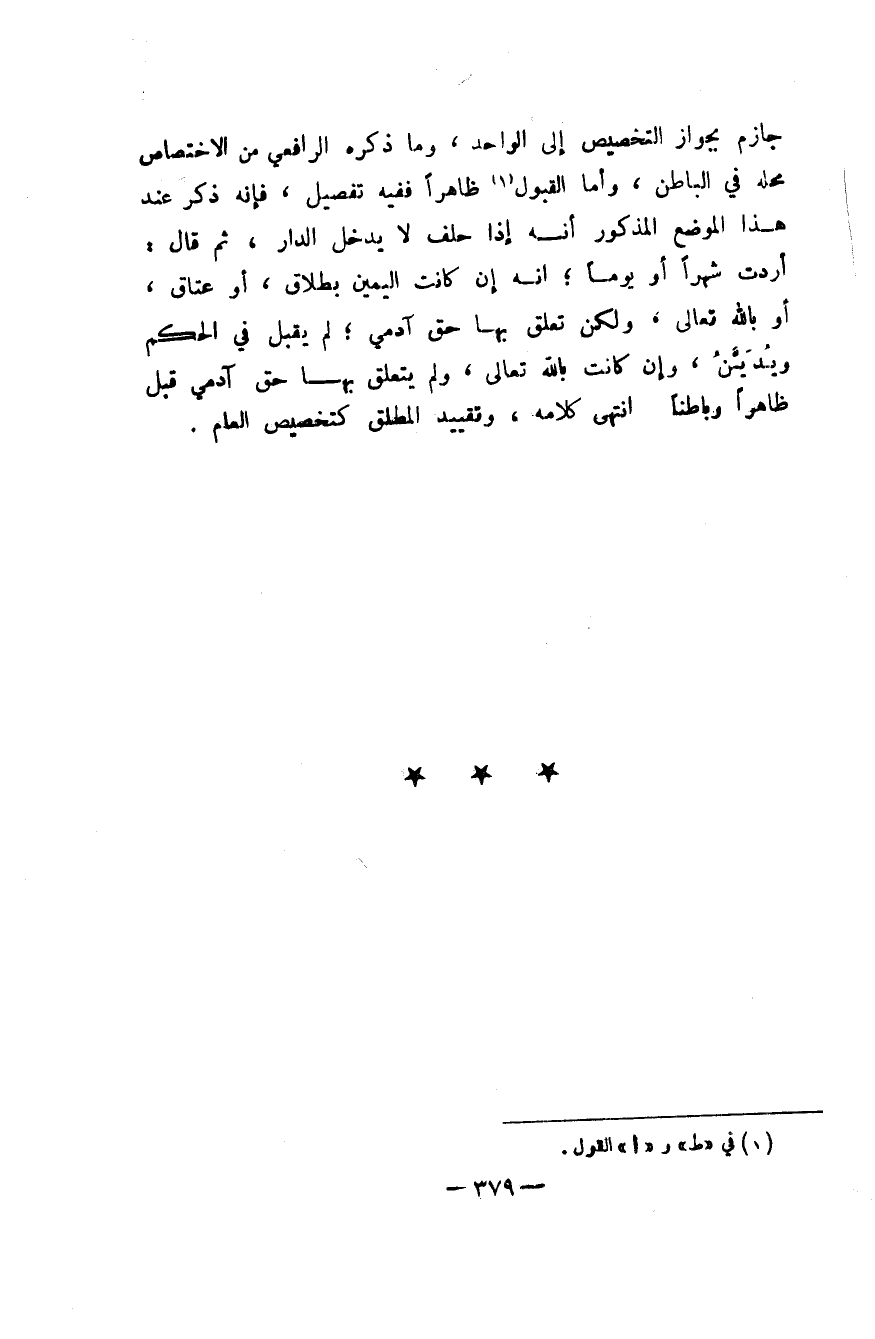 جازم بجواز التخصيص إلى الواحد ، وما ذكره الرافعي من الاختصاص
محله في الباطن ، وأما القبول(١) ظاهراً ففيه تفصيل ، فإنه ذكر عند
هـذا الموضع المذكور أنـــه إذا حلف لا يدخل الدار ، ثم قال :
أردت شهراً أو يومـاً ؛ انـه إن كانت اليمين بطلاق ، أو عتاق ،
أو بالله تعالى ، ولكن تعلق بهـا حق آدمي ؛ لم يقبل في الحكم
ويُدَيَّنُ ، وإن كانت بالله تعالى ، ولم يتعلق بهـــا حق آدمي قبل
ظاهراً وباطناً انتهى كلامه ، وتقييد المطلق كتخصيص العام .
★ ★ ★
(١) في «ط» و «أ» القول .
— ٣٧٩ —